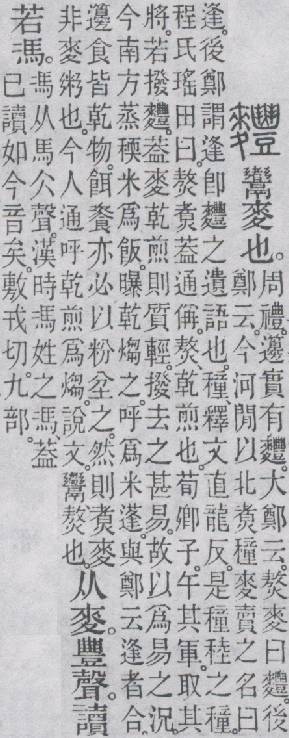 麷䰞麥也。
周禮籩實有麷。大鄭云。熬麥曰麷。後
鄭云。今河閒以北煑穜麥賣之。名曰
逢。後鄭謂逢卽麷之遺語也。穜、釋文直龍反。是穜稑之穜。
程氏瑤田曰。熬煑葢通偁。熬、乾煎也。荀卿子。午其軍。取其
將。若撥麷。葢麥乾煎則質輕。撥去之甚易。故以爲易之況。
今南方蒸稬米爲飯。曝乾煼之。呼爲米蓬。與鄭云逢者合。
籩食皆乾物。餌餈亦必以粉坌之。然則煑麥
非麥粥也。今人通呼乾煎爲煼。說文。䰞、熬也。
从麥。豐聲。讀
若馮。
馮从馬仌聲。漢時馮姓之馮、葢
已讀如今音矣。敷戎切。九部。